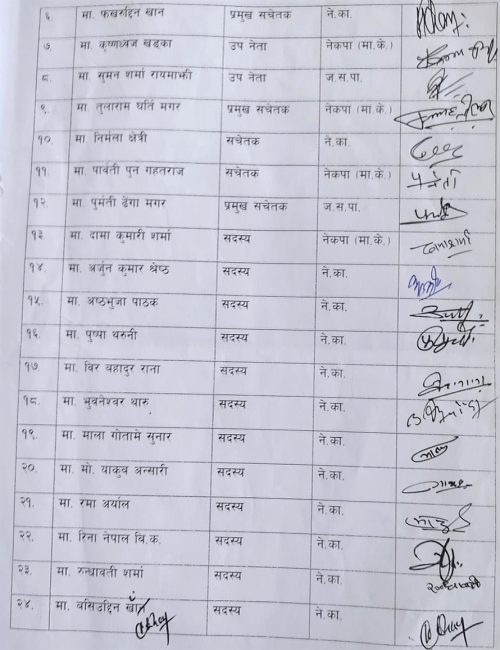 ६. मा. फखरुद्दिन खान प्रमुख सचेतक ने.का.
७. मा. कृष्णध्वज खड्का उप नेता नेकपा (मा.के.)
८. मा. सुमन शर्मा रायमाझी उप नेता ज.स.पा.
९. मा तुलाराम घर्ति मगर प्रमुख सचेतक नेकपा (मा.के.)
१०. मा निर्मला क्षेत्री सचेतक ने.का.
११. मा. पार्वती पुन गहतराज सचेतक नेकपा (मा.के.)
१२. मा पुर्मती ढेंगा मगर प्रमुख सचेतक ज.स.पा.
१३. मा. दामा कुमारी शर्मा सदस्य नेकपा (मा.के.)
१४. मा. अर्जुन कुमार श्रेष्ठ सदस्य ने.का.
१५. मा. अष्ठभुजा पाठक सदस्य ने.का.
१६. मा. पुष्पा थरुनी सदस्य ने.का.
१७. मा. विर वहादुर राना सदस्य ने.का.
१८. मा. भुवनेश्वर थारु सदस्य ने.का.
१९. मा. माला गोतामे सुनार सदस्य ने.का.
२०. मा. मो. याकुव अन्सारी सदस्य ने.का.
२१. मा. रमा अर्याल सदस्य ने.का.
२२. मा. रिना नेपाल वि.क. सदस्य ने.का.
२३. मा. रुन्धावती शर्मा सदस्य ने.का.
२४. मा. वसिउद्दिन खाँन सदस्य ने.का.